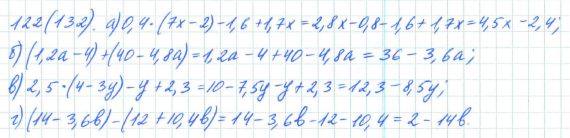 122(132). а) 0,4·(7x-2)-1,6+1,7x=2,8x-0,8-1,6+1,7x=4,5x-2,4;
б) (1,2a-4)+(40-4,8a)=1,2a-4+40-4,8a=36-3,6a;
в) 2,5·(4-3y)-y+2,3=10-7,5y-y+2,3=12,3-8,5y;
г) (14-3,6b)-(12+10,4b)=14-3,6b-12-10,4=2-14b.